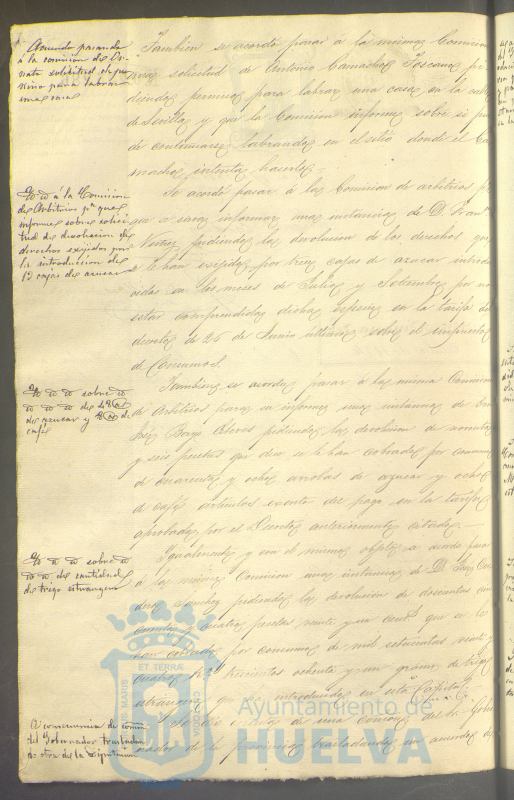 Acuerdo pasando
á la comision de Or-
nato solicitud de per-
miso para labrar
una casa
Tambien se acordó pasar á la misma Comision
una solicitud de Antonio Camacho Toscano pi-
diendo permiso para labrar una casa en la calle
de Sevilla y que la Comision informe sobre si pue-
de continuarse labrando en el sitio donde el Ca-
macho intenta hacerlo.
Id. id. á la Comision
de Arbitrios pa. que
informe sobre solici-
tud de devolucion de
derechos exijidos por
la introduccion de
13 cajas de azucar
Se acordó pasar á la Comision de arbitrios pa.
que se sirva informar, una instancia de D. Fran.
Nuñez pidiendo la devolucion de los derechos que
se le han exijido por trece cajas de azucar introdu-
cidas en los meses de Julio y Setiembre por no
estar comprendida dicha especie en la tarifa del
decreto de 26 de Junio último sobre el impuesto
de Consumos.
Id. id. id. sobre id.
id. id. id. de 48 @
de azucar y 8 @ de
café
Tambien se acordó pasar á la misma Comision
de Arbitrios para su informe una instancia de Don
José pidiendo la devolucion de noventa
y seis pesetas que dice se le han cobrado por consumos
de cuarenta y ocho arrobas de azucar y ocho
de café, articulos exentos del pago en la tarifa
aprobada por el Decreto anteriormente citado.
Id. id. id. sobre id.
id. id. id. de cantidad
de trigo estrangero
Igualmente y con el mismo objeto se acordó pasar
á la misma Comision una instancia de D. José
pidiendo la devolucion de doscientas cin-
cuenta y cuatro pesetas veinte y un cent. que se le
han cobrado por consumos de mil setecientos veinte y
cuatro trescientos ochenta y un gramos de trigo
estrangero que ha introducido en esta Capital.
A consecuencia de comn.
del Gobernador trasladan-
do otra de la Diputacion
Se dió cuenta de una comon. del Sr. Gober-
nador de la provincia trasladando un acuerdo de
MARIS
ET TERRÆ
CUSTODIA
Ayuntamiento de
HUELVA